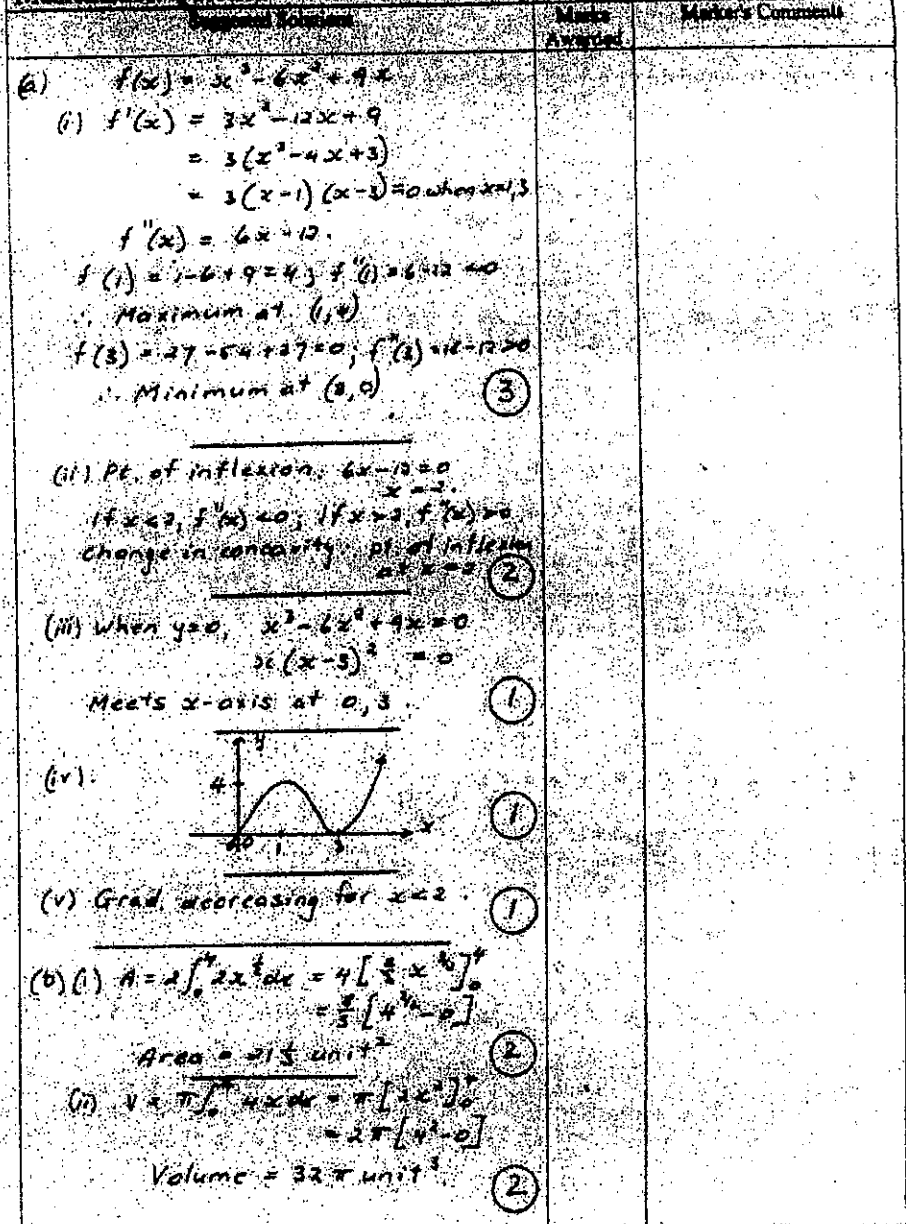 Suggested Solutions
Marks Awarded
Marker's Comments
(a) f(x) = x³ - 6x² + 9x
(i) f'(x) = 3x² - 12x + 9
= 3(x² - 4x + 3)
= 3(x-1)(x-3) = 0 when x=1,3
f"(x) = 6x - 12.
f(1) = 1-6+9 = 4; f"(1) = 6-12 <0
∴ Maximum at (1,4)
f(3) = 27-54+27 = 0; f"(3) = 18-12 >0
∴ Minimum at (3,0)
(3)
(ii) Pt. of inflexion. 6x-12=0
x = 2.
If x<2, f"(x) <0; If x>2, f"(x) >0
Change in concavity ∴ pt of inflexion
at x = 2
(2)
(iii) When y=0, x³ - 6x² + 9x = 0
x(x-3)² = 0
Meets x-axis at 0, 3.
(1)
(iv).
y
4
0
1
3
x
(1)
(v) Grad. decreasing for x<2.
(1)
(b)(i) A = 2∫₀⁴ 2x^½ dx = 4[⅔ x^3/2]₀⁴
= 8/3 [4^3/2 - 0]
Area = 21⅓ unit²
(2)
(ii) V = π∫₀⁴ 4x dx = π[2x²]₀⁴
= 2π[4² - 0]
Volume = 32π unit³.
(2)